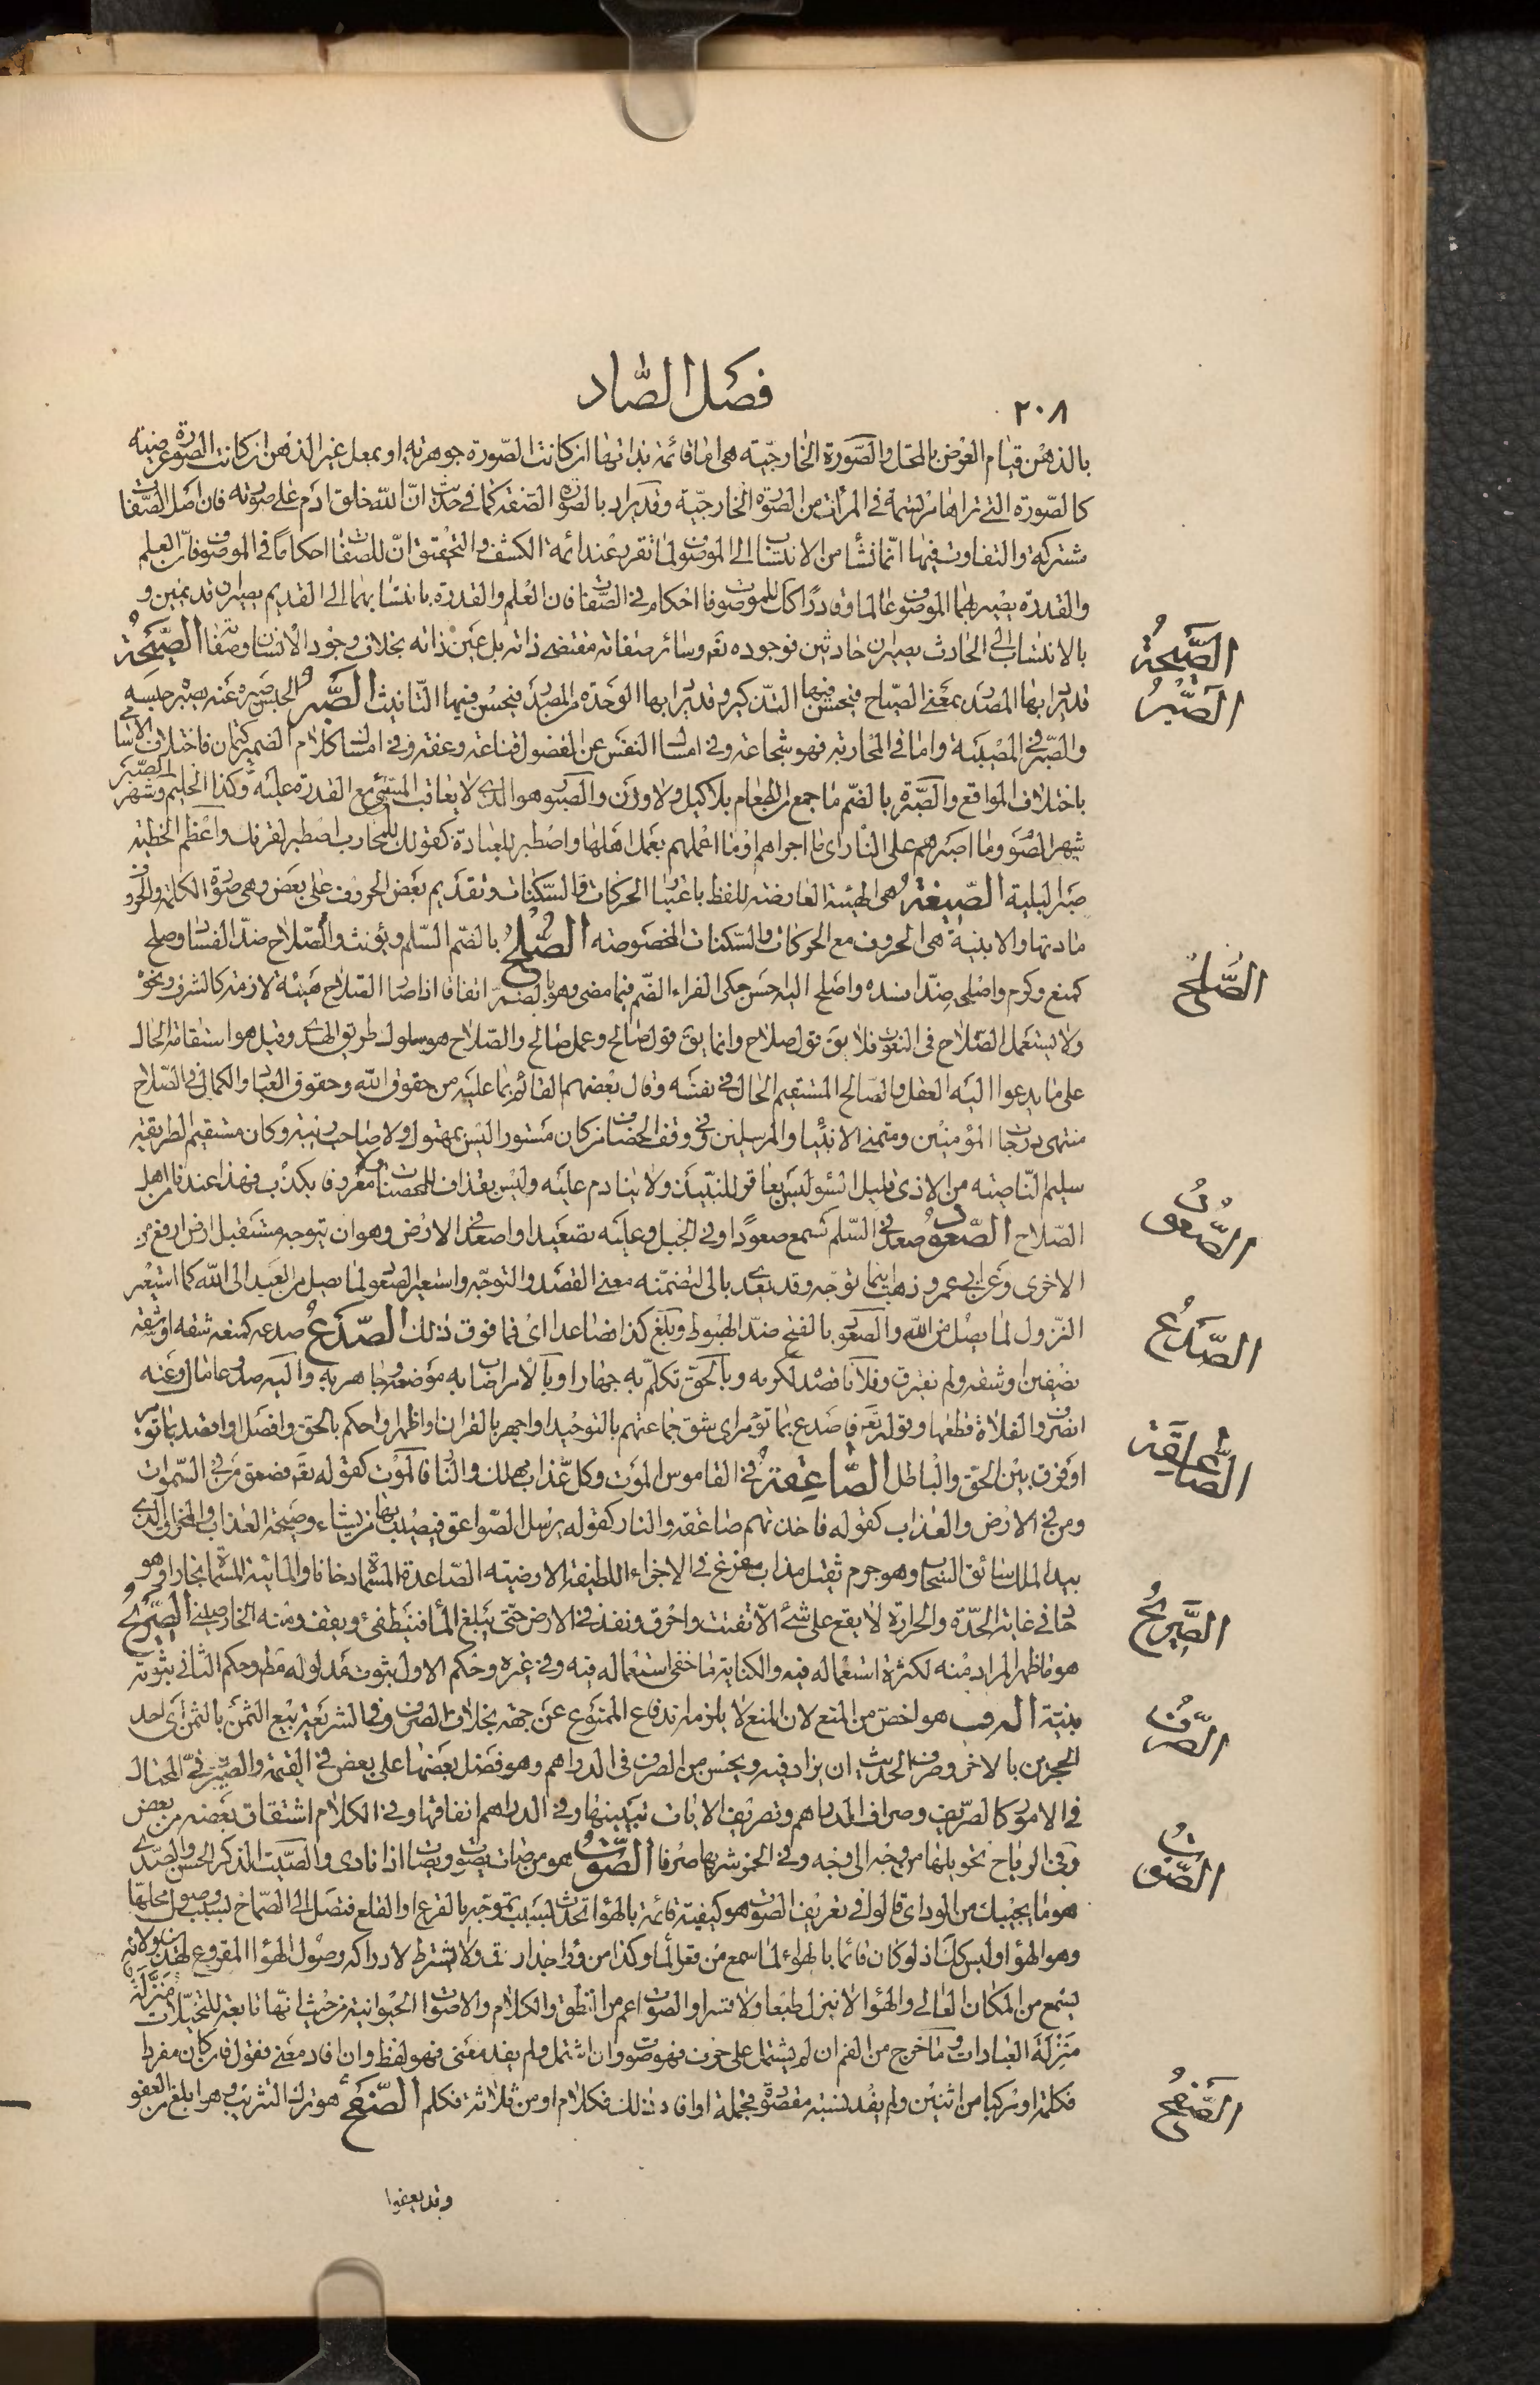 فصل الصّاد
٢٠٨
بالذهن قيام العرض بالمحل والصّورة الخارجيّة هى اما قائمة بذاتها ان كانت الصّورة جوهرية او بمحل غير الذهن ان كانت الصّورة عرضيّة
كالصّورة التى تراها مرتسمة فى المرآت من الصّورة الخارجيّة وقد يراد بالصّورة الصّفة كما فى حديث انّ الله خلق ادم على صورته فان اصل الصّفات
مشتركة والتفاوت فيها انّما نشأ من الانتساب الى الموصوف لما تقرر عند ائمة الكشف والتحقيق انّ للصّفات احكاماً فى الموصوف فانّ العلم
والقدرة يصير بهما الموصوف عالماً وقادراً كذلك للموصوف احكام فى الصّفات فان العلم والقدرة بانتسابهما الى القديم يصيران قديمين و
بالانتساب الى الحادث يصيران حادثين فوجوده تعه وسائر صفاته مقتضى ذاته بل عين ذاته بخلاف وجود الانسان وصفاته الصّيحة
قد يراد بها المصدر بمعنى الصّياح فيحسن فيها التذكير وقد يراد بها الوحدة من المصدر فيحسن فيها التأنيث الصّبر الحبس صبره عنه يصبره حبسه
والصّبر فى المصيبة واما فى المحاربة فهو شجاعة وفى امساك النفس عن الفضول قناعة وعفة وفى امساك كلام الضمير كتمان فاختلاف الاسامى
باختلاف المواقع والصّبرة بالضّم ما جمع من الطعام بلا كيل ولا وزن والصبور هو الذى لا يعاقب المسئ مع القدرة عليه وكذا الحليم وشهر الصّبر
شهر الصّوم وما اصبرهم على النار اى ما اجراهم او ما اعملهم بعمل اهلها واصطبر للعبادة كقولك للمحارب اصطبر لقرنك واعظم الخطية
الصّيغة هى الهيئة العارضة للفظ باعتبار الحركات والسّكنات وتقديم بعض الحروف على بعض وهى صورة الكلمة والحروف
مادتها والابنية هى الحروف مع الحركات والسّكنات المخصوصة الصّلح بالضّم السّلم ويؤنث والصّلاح ضدّ الفساد وصلح
كمنع وكرم واصلحه ضدّ افسده واصلح اليه احسن حكى الفراء الضّم فيما مضى وهو بالضمّ اتفاقا اذا صار الصّلاح هيئة لازمة كالشرف ونحوه
ولا يستعمل الصّلاح فى النعوت فلا يق قول صلاح وانما يق قول صالح وعمل صالح والصّلاح هو سلوك طريق الهدى وقيل هو استقامة الحال
على ما يدعوا اليه العقل والصّالح المستقيم الحال فى نفسه وقال بعضهم القائم بما عليه من حقوق الله وحقوق العباد والكمال فى الصّلاح
منتهى درجات المؤمنين ومتمنى الانبياء والمرسلين وفى وقف الخصاف من كان مستورا ليس بمهتوك ولا صاحب ريبة وكان مستقيم الطريقة
سليم النّاصية من الاذى قليل السّوء ليس يعاقر للنبيذ ولا ينادم عليه وليس بقذاف للمحصنات ولا معروفا بكذب فهذا عندنا من اهل
الصّلاح الصّعود صعد فى السّلم كسمع صعودًا وفى الجبل وعليه تصعيدا واصعد فى الارض وهو ان يتوجه مستقبل ارض ارفع من
الاخرى وعن ابى عمرو ذهب اينما توجّه وقد يعدى بالى لتضمّنه معنى القصد والتوجّه واستعير الصّعود لما يصل من العبد الى الله كما استعير
النّزول لما يصل من الله والصّعود بالفتح ضدّ الهبوط وبلغ كذا فصاعدا اى فما فوق ذلك الصّدع صدعه كمنعه شقه او شقه
نصفين او شقه ولم يفترق وفلانا قصد لكرمه وبالحق تكلّم به جهارا وبالامر اصاب به موضعه وجاهر به واليه صدوعا مال وعنه
انصرف والفلاة قطعها وقوله تعه فاصدع بما تؤمر اى شق جماعتهم بالتوحيد او اجهر بالقرآن او اظهر او احكم بالحق وافصل او اقصد بما تؤمر
او فرق بين الحق والباطل الصّاعقة فى القاموس الموت وكل عذاب مهلك والنّار فالموت كقوله تعه فصعق من فى السّموات
ومن فى الارض والعذاب كقوله فاخذتهم صاعقة والنار كقوله يرسل الصّواعق فيصيب بها من يشاء وصيحة العذاب والمخراق الذى
بيد الملك سائق السّحاب وهو جرم ثقيل مذاب مفرغ فى الاجزاء اللطيفة الارضيّة الصّاعدة المسمّاة دخانا والمائية المسمّاة بخارا وهو
حار فى غاية الحدّة والحرارة لا يقع على شئ الّا تفتت واحرق ونفذ فى الارض حتى يبلغ الماء فينطفئ ويقف ومنه الخارصينى الصّريح
هو ما ظهر المراد منه لكثرة استعماله فيه والكناية ما خفى استعماله فيه وفى غيره وحكم الاول ثبوت مدلوله مط وحكم الثانى ثبوته
بنيّة الصرف هو اخصّ من المنع لان المنع لا يلزمه اندفاع الممنوع عن جهة بخلاف الصّرف وفى الشريعة بيع الثمن بالثمن اى احد
الحجرين بالاخر وصرف الحديث ان يزاد فيه ويحسن من الصرف فى الدراهم وهو فضل بعضها على بعض فى القيمة والصّيرفىّ المحتال
فى الامور كالصّريف وصراف الدراهم وتصريف الايات تبيينها وفى الدراهم انفاقها وفى الكلام اشتقاق بعضه من بعض
وفى الرياح تحويلها من وجه الى وجه وفى الخمر شربها صرفا الصّوت هو من صات يصوت ويصات اذا نادى والصّيت الذكر الحسن والصّدى
هو ما يجيبك من الوادى قالوا فى تعريف الصّوت هو كيفيّة قائمة بالهواء تحدث بسبب تموّجه بالقرع او القلع فتصل الى الصّماخ بسبب وصول محلّها
وهو الهواء وليس كذلك اذ لو كان قائما بالهواء لما سمع من قعر الماء وكذا من وراء جدار ولا يشترط لادراكه وصول الهواء المقروع لانه
يسمع من المكان العالى والهواء لا ينزل طبعا ولا قسرا والصّوت اعم من النطق والكلام والاصوات الحيوانية من حيث انّها تابعة للتخيّلات منزّلة
منزلة العبارات وما خرج من الفم ان لم يشتمل على حرف فهو صوت وان اشتمل ولم يفد معنى فهو لفظ وان افاد معنى فقول فان كان مفردا
فكلمة او مركبا من اثنين ولم يفد نسبة مقصودة فجملة او افاد ذلك فكلام او من ثلاثة فكلم الصّفح هو ترك التثريب وهو ابلغ من العفو
وقد يعفوا
الصّيحة
الصّبر
الصّلح
الصّعود
الصّدع
الصّاعقة
الصّريح
الصّرف
الصّوت
الصّفح